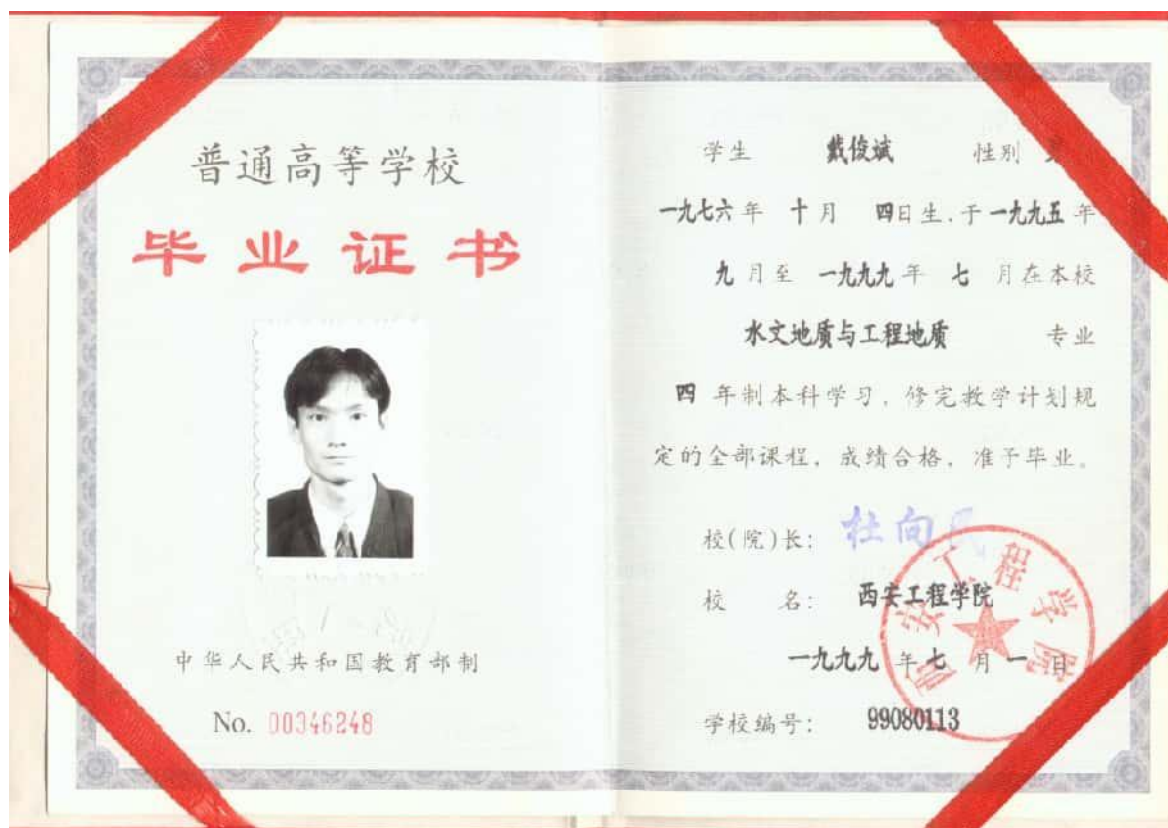 普通高等学校
毕业证书
中华人民共和国教育部制
No. 00346248
学生 戴俊斌 性别 男
一九七六年 十月 四日生,于一九九五年
九月至 一九九九年 七 月在本校
水文地质与工程地质 专业
四 年制本科学习,修完教学计划规
定的全部课程,成绩合格,准予毕业。
校(院)长: 杜向
校 名: 西安工程学院
一九九九年七月一日
学校编号: 99080113
西安工程学院